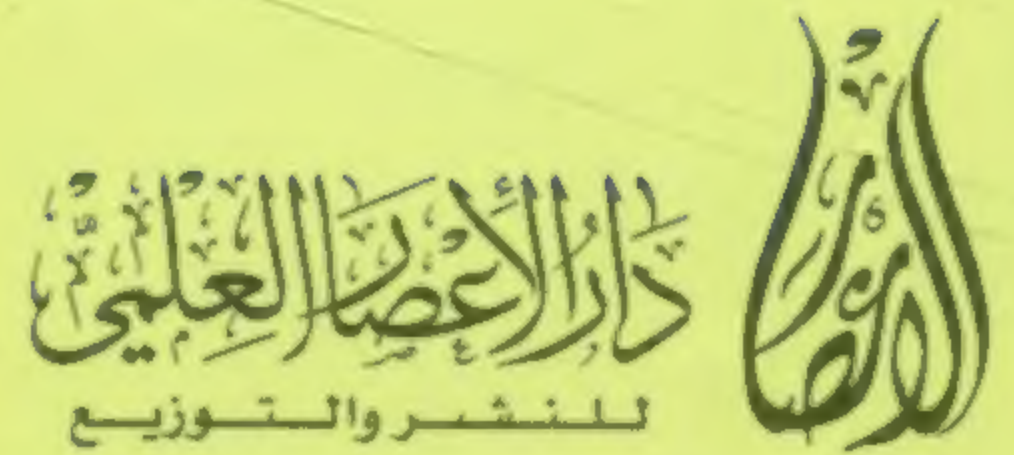 الإعصار
دَارُ الْأَعْصَارِ الْعِلْمِيِّ
للنشر والتوزيع